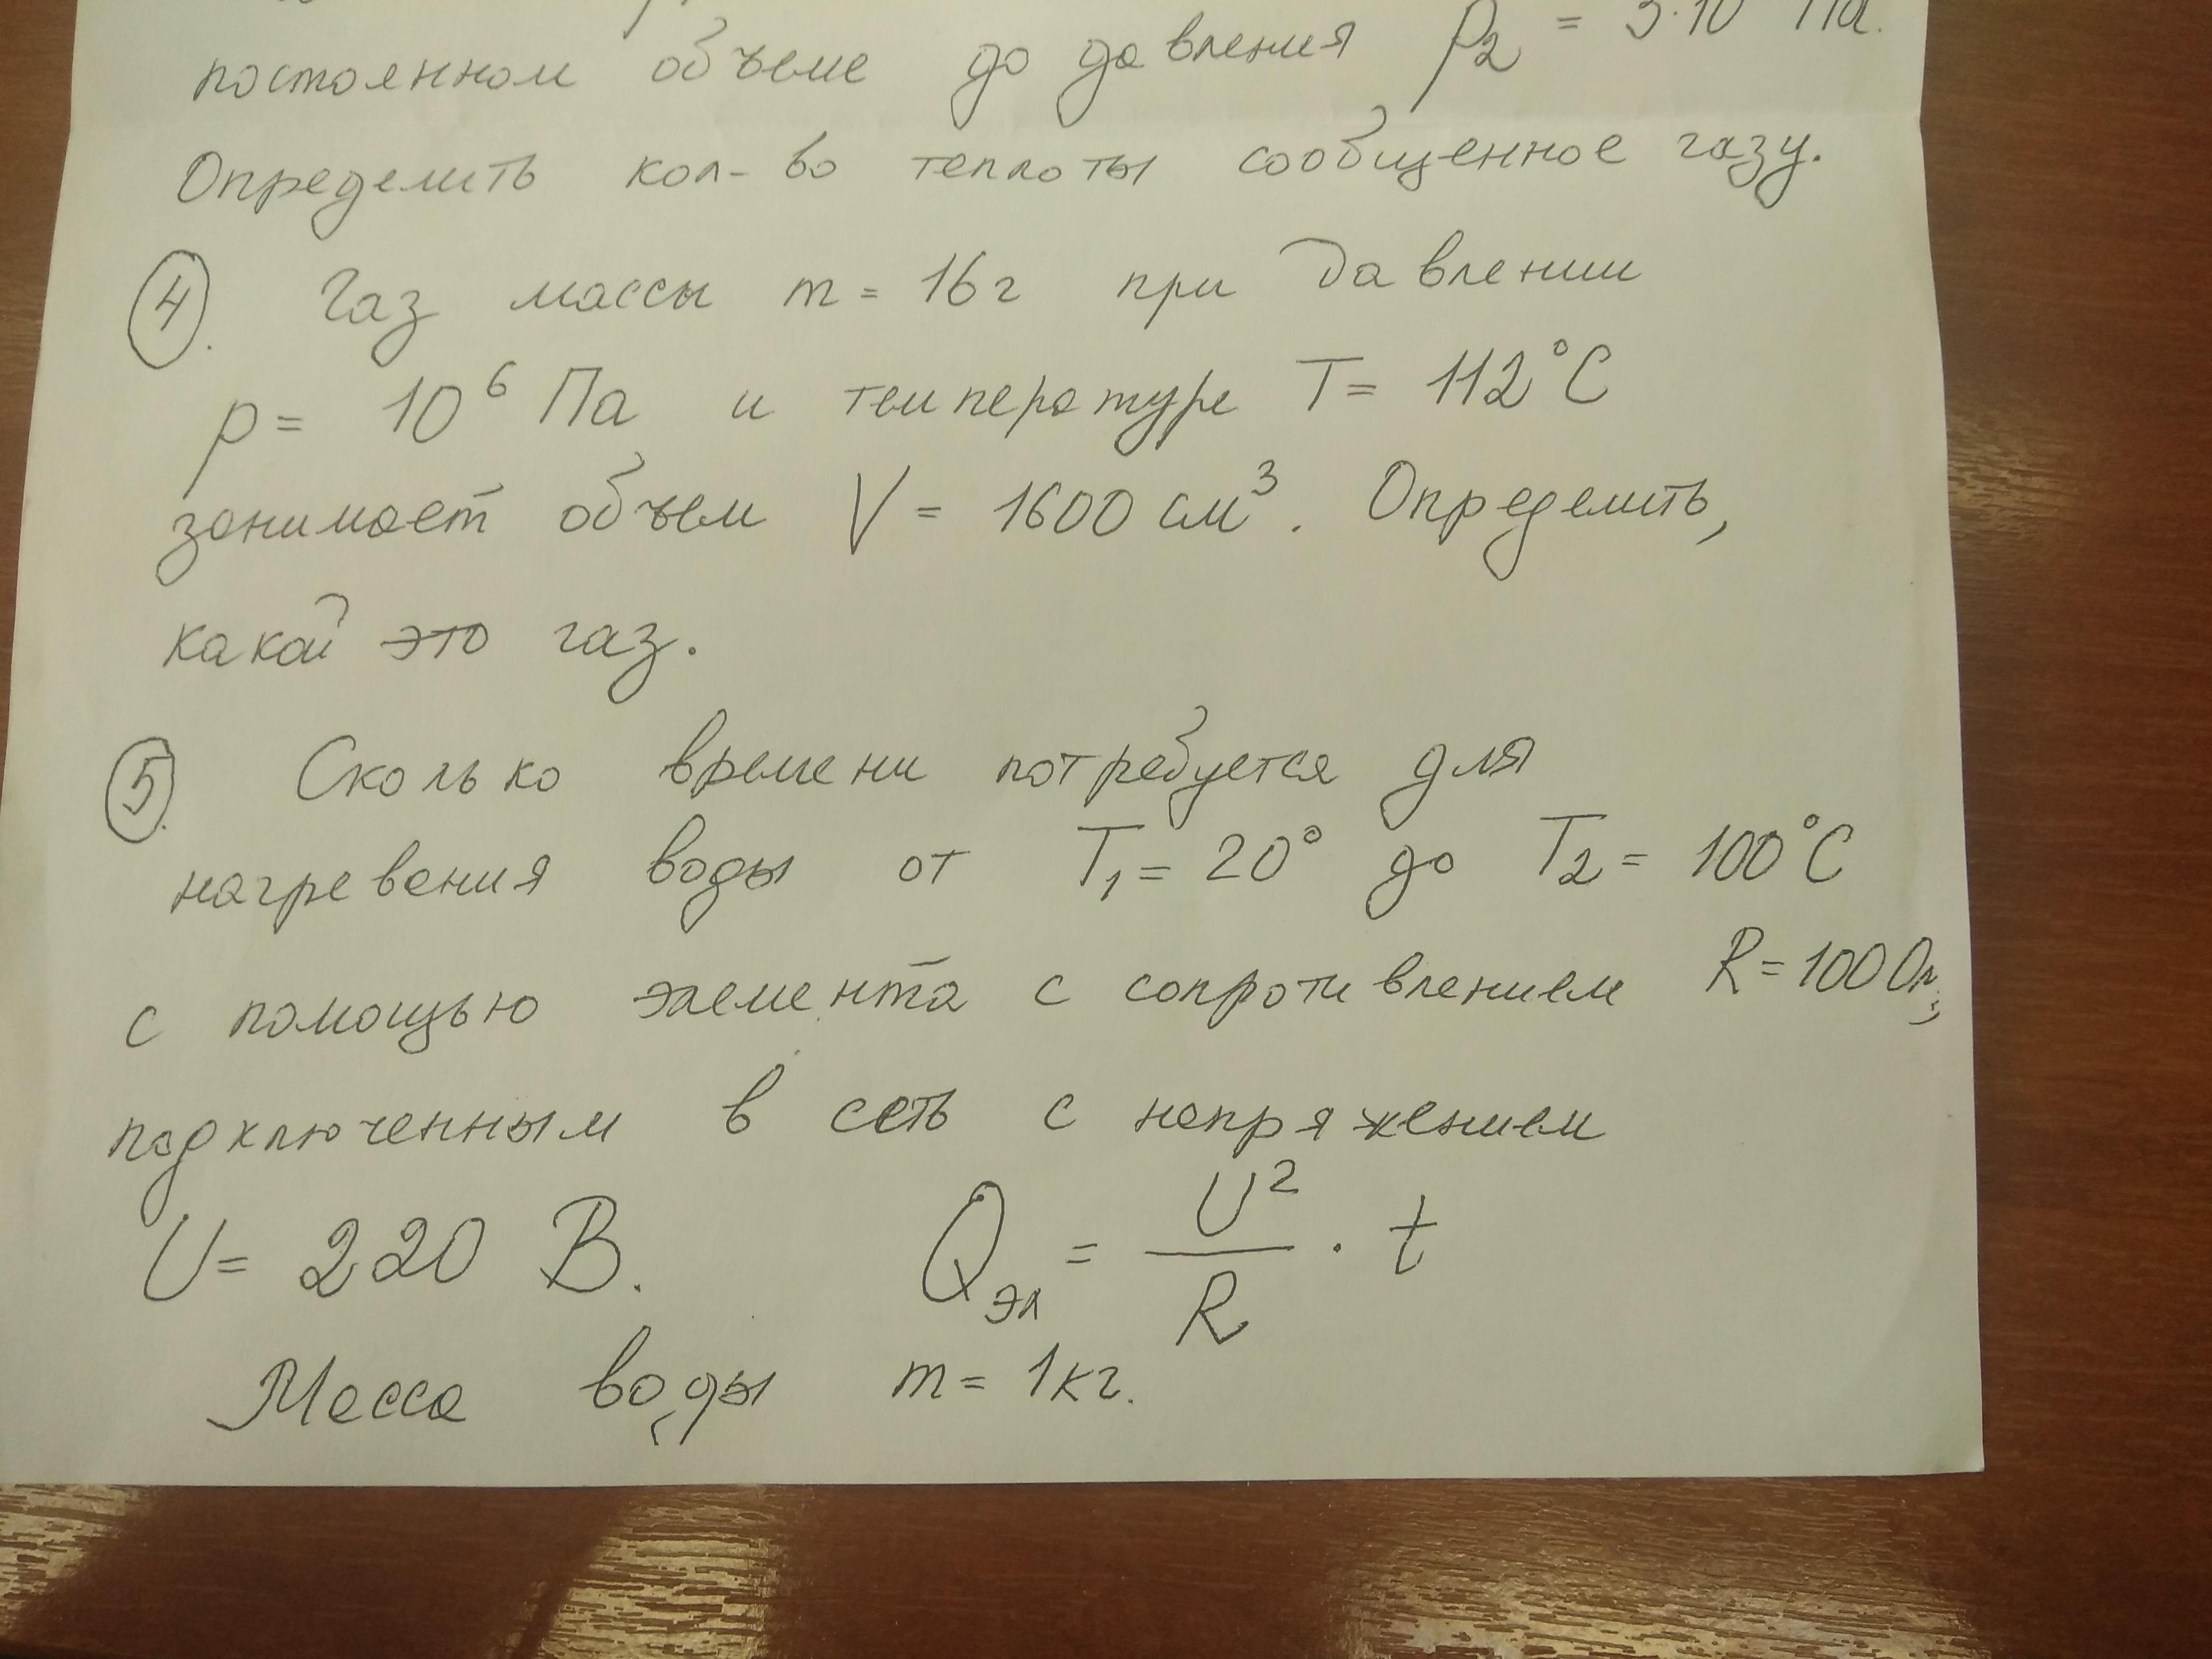 постоянном объеме до давления p₂ = 3·10 Па.
Определить кол-во теплоты сообщенное газу.
4. Газ массы m = 16г при давлении
p = 10⁶ Па и температуре T = 112°C
занимает объем V = 1600 см³. Определить,
какой это газ.
5. Сколько времени потребуется для
нагревания воды от T₁ = 20° до T₂ = 100°C
с помощью элемента с сопротивлением R = 100 Ом,
подключенным в сеть с напряжением
U = 220 В. Qэл = U²/R · t
Масса воды m = 1кг.